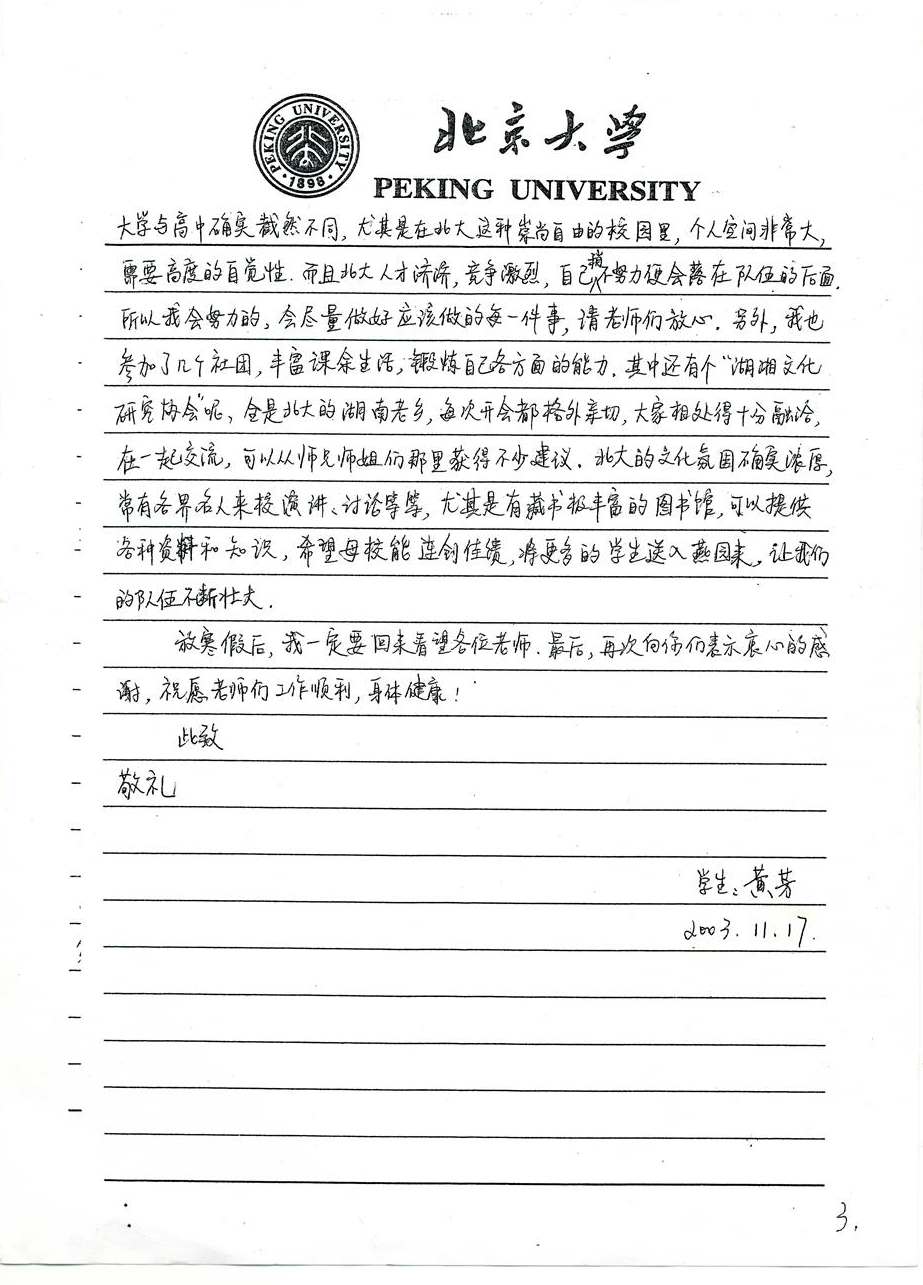 PEKING UNIVERSITY
1898
北京大学
PEKING UNIVERSITY
大学与高中确实截然不同,尤其是在北大这种崇尚自由的校园里,个人空间非常大,
需要高度的自觉性.而且北大人才济济,竞争激烈,自己稍不努力便会落在队伍的后面.
所以我会努力的,会尽量做好应该做的每一件事,请老师们放心.另外,我也
参加了几个社团,丰富课余生活,锻炼自己各方面的能力.其中还有个“湖湘文化
研究协会”呢、全是北大的湖南老乡,每次开会都格外亲切,大家相处得十分融洽,
在一起交流,可以从师兄师姐们那里获得不少建议.北大的文化氛围确实浓厚,
常有各界名人来校演讲、讨论等等,尤其是有藏书极丰富的图书馆,可以提供
各种资料和知识,希望母校能连创佳绩,将更多的学生送入燕园来,让我们
的队伍不断壮大.
放寒假后,我一定要回来看望各位老师.最后,再次向你们表示衷心的感
谢,祝愿老师们工作顺利,身体健康!
此致
敬礼
学生:黄芳
2003.11.17.
3.